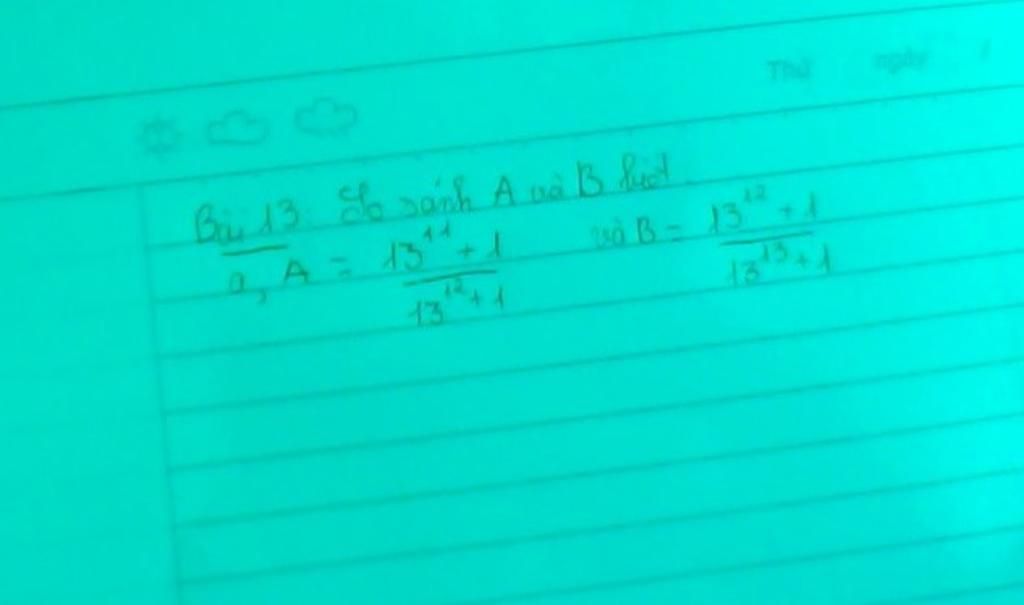 Thứ ngày /
Bài 13: So sánh A và B biết
a, A = \frac{13^{11} + 1}{13^{12} + 1} và B = \frac{13^{12} + 1}{13^{13} + 1}